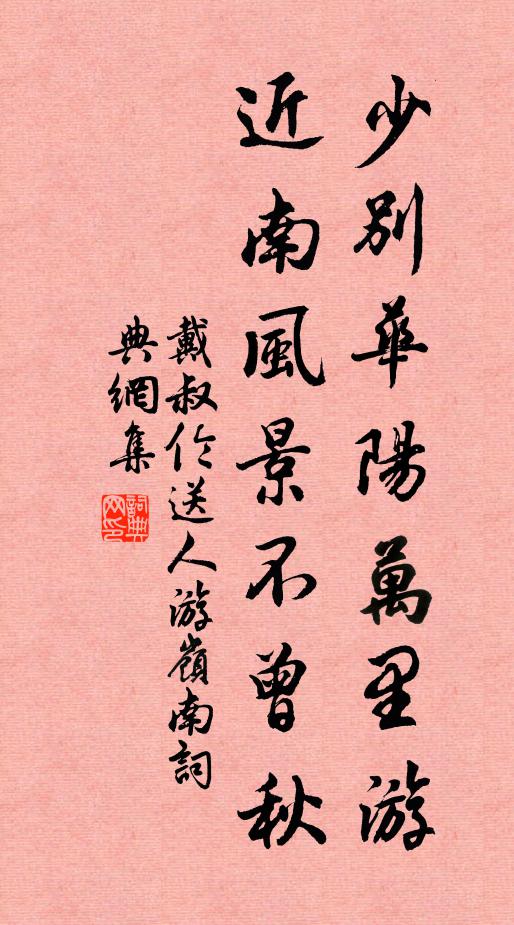 少別華陽萬里游
近南風景不曾秋
戴叔伦送人游嶺南詞
典網集
詞典网印